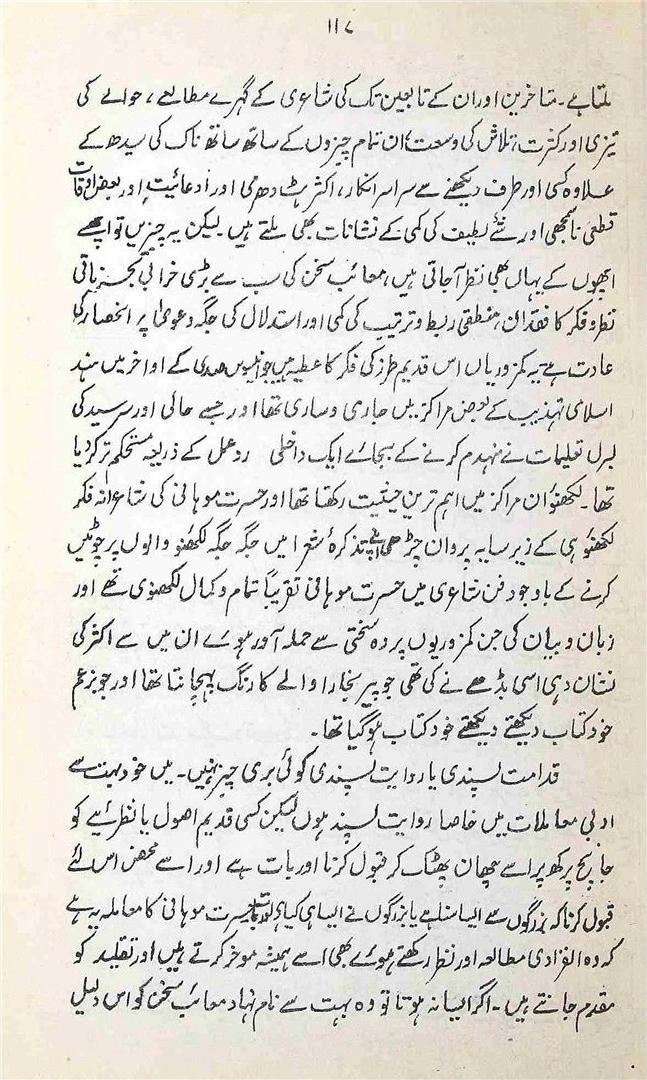 ۱۱۷
ملتا ہے۔ متاخرین اور ان کے تابعین تک کی شاعری کے گہرے مطالعے، حوالے کی
تیزی اور کثرت، تلاش کی وسعت، ان تمام چیزوں کے ساتھ ساتھ ناک کی سیدھ کے
علاوہ کسی اور طرف دیکھنے سے سراسر انکار، اکثر ہٹ دھرمی اور ادعائیت، اور بعض اوقات
قطعی ناسمجھی اور شئے لطیف کی کمی کے نشانات بھی ملتے ہیں۔ لیکن یہ چیزیں تو اچھے
اچھوں کے یہاں بھی نظر آجاتی ہیں، معائب سخن کی سب سے بڑی خرابی تجزیاتی
نظر و فکر کا فقدان، منطقی ربط و ترتیب کی کمی اور استدلال کی جگہ دعویٰ پر انحصار کی
عادت ہے۔ یہ کمزوریاں اس قدیم طرز کی فکر کا عطیہ ہیں جو انیسویں صدی کے اواخر میں ہند
اسلامی تہذیب کے بعض مراکز میں جاری و ساری تھا اور جسے حالی اور سرسید کی
لبرل تعلیمات نے منہدم کرنے کے بجائے ایک داخلی ردعمل کے ذریعہ مستحکم تر کر دیا
تھا۔ لکھنؤ ان مراکز میں اہم ترین حیثیت رکھتا تھا اور حسرت موہانی کی شاعرانہ فکر
لکھنؤ ہی کے زیر سایہ پروان چڑھی اپنے تذکرۂ شعرا میں جگہ جگہ لکھنؤ والوں پر چوٹیں
کرنے کے باوجود فن شاعری میں حسرت موہانی تقریباً تمام و کمال لکھنوی تھے اور
زبان و بیان کی جن کمزوریوں پر وہ سختی سے حملہ آور ہوئے ان میں سے اکثر کی
نشان دہی اسی بڈھے نے کی تھی جو پیر بخارا والے کا رنگ پہچانتا تھا اور جو بزعم
خود کتاب دیکھتے دیکھتے خود کتاب ہو گیا تھا۔
قدامت پسندی یا روایت پسندی کوئی بری چیز نہیں۔ میں خود بہت سے
ادبی معاملات میں خاصا روایت پسند ہوں لیکن کسی قدیم اصول یا نظریے کو
جانچ پرکھ پر اسے چھان پھٹک کر قبول کرنا اور بات ہے اور اسے محض اس لئے
قبول کرنا کہ بزرگوں سے ایسا سنا ہے یا بزرگوں نے ایسا ہی کیا ہے حسرت موہانی کا معاملہ یہ ہے
کہ وہ انفرادی مطالعہ اور نظر رکھتے ہوئے بھی اسے ہمیشہ موخر کرتے ہیں اور تقلید کو
مقدم جانتے ہیں۔ اگر ایسا نہ ہوتا تو وہ بہت سے نام نہاد معائب سخن کو اس دلیل